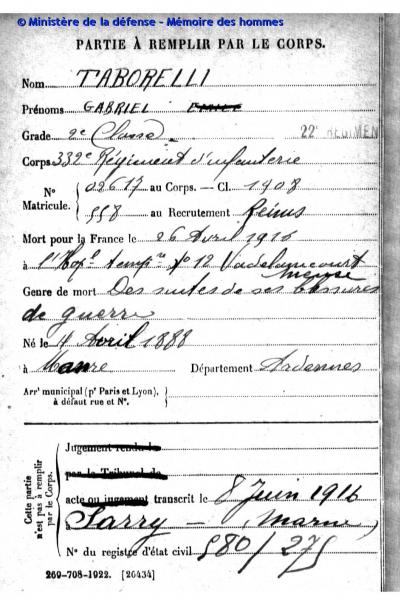 © Ministère de la défense - Mémoire des hommes
PARTIE À REMPLIR PAR LE CORPS.
Nom TABORELLI
Prénoms GABRIEL
Grade 2e Classe. 22e RÉGIMEN
Corps 332e Régiment d'infanterie
N° Matricule. 02617 au Corps. — Cl. 1908
558 au Recrutement Reims
Mort pour la France le 26 Avril 1916
à l'Hopl tempre No 12 Vadelaincourt
meuse
Genre de mort Des suites de ses blessures
de guerre
Né le 4 Avril 1888
à Manre Département Ardennes
Arrt municipal (pr Paris et Lyon), à défaut rue et N°.
Cette partie n'est pas à remplir par le Corps.
Jugement rendu le
par le Tribunal de
acte ou jugement transcrit le 8 Juin 1916
Sarry - Marne
N° du registre d'état civil 580/275
269-708-1922. [26434]